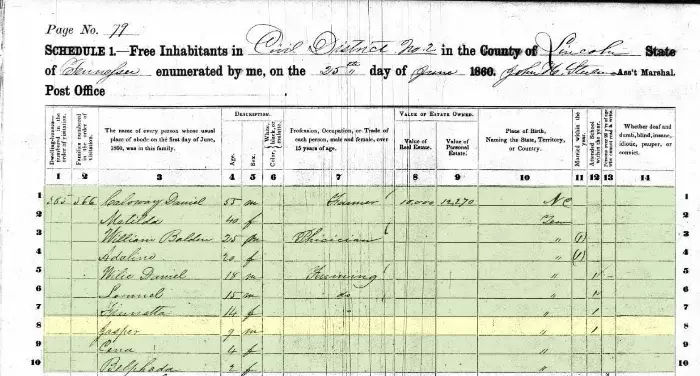 Page No. 79
SCHEDULE 1.—Free Inhabitants in Civil District No. 2 in the County of Lincoln State
of Tennessee enumerated by me, on the 25th day of June 1860. John Ass't Marshal.
Post Office
Dwelling-houses—numbered in the order of visitation.
Families numbered in the order of visitation.
The name of every person whose usual place of abode on the first day of June, 1860, was in this family.
DESCRIPTION.
Age.
Sex.
Color, White, black, or mulatto.
Profession, Occupation, or Trade of each person, male and female, over 15 years of age.
VALUE OF ESTATE OWNED.
Value of Real Estate.
Value of Personal Estate.
Place of Birth, Naming the State, Territory, or Country.
Married within the year.
Attended School within the year.
Whether deaf and dumb, blind, insane, idiotic, pauper, or convict.
1 2 3 4 5 6 7 8 9 10 11 12 13 14
1 385 366 Caloway Daniel 55 m Farmer 10,000 12,270 NC 1
2 Matilda 40 f Ten 2
3 William Bolden 25 m Phisician " (1) 3
4 Adaline 20 f " (1) 4
5 Wilie Daniel 18 m Farming " 5
6 Samuel 15 m do " 6
7 Henretta 14 f " 1 7
8 Jasper 9 m " 1 8
9 Cena 4 f " 9
10 Belphada 2 f " 10